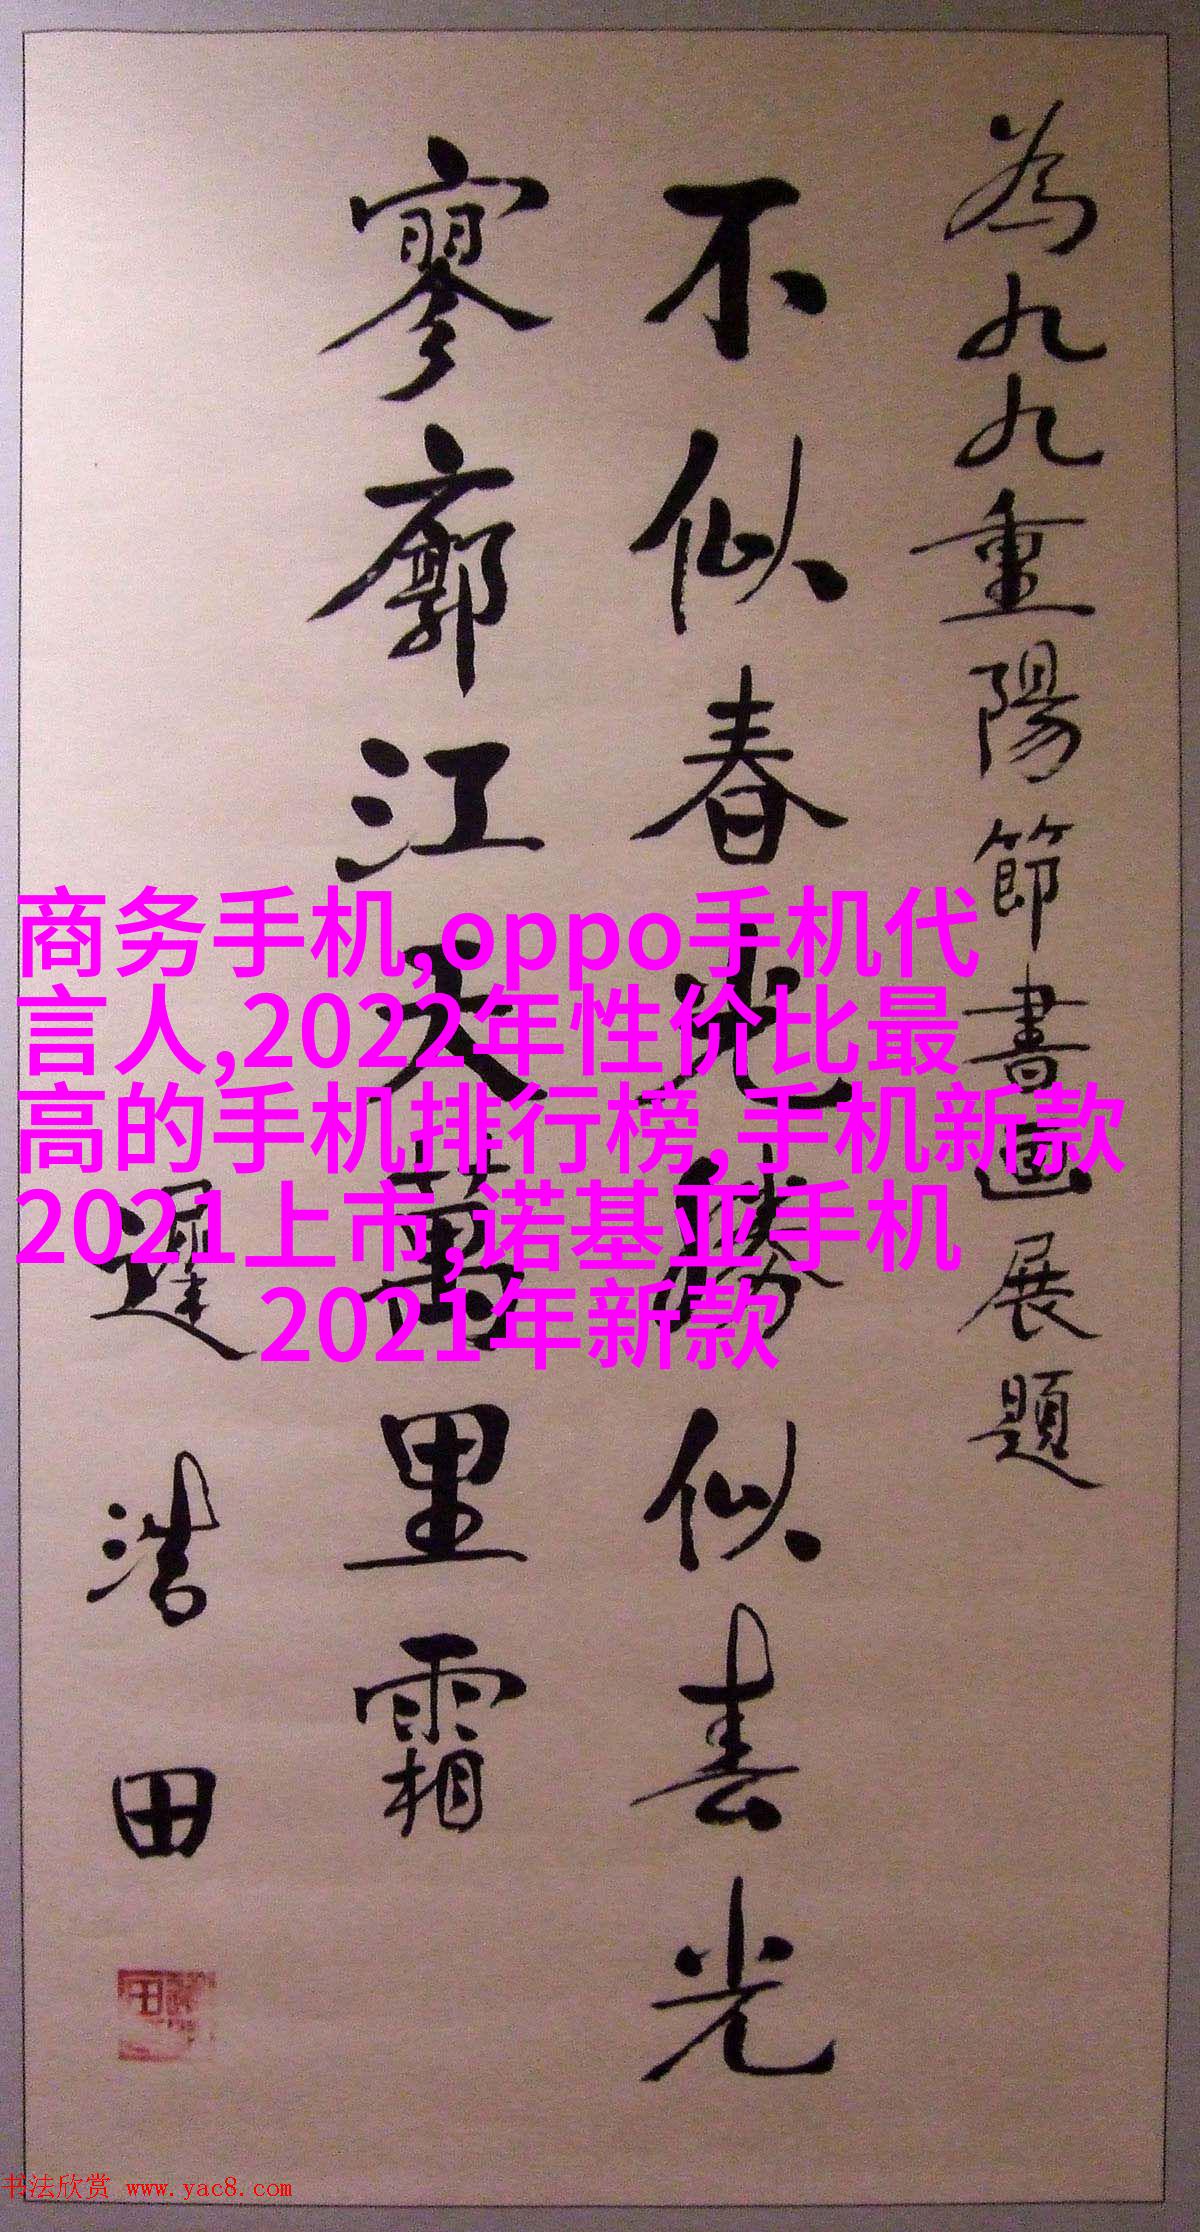 為九九重陽節書画展題
不似春光勝似春光
寥廓江天萬里霜
遲浩田
商务手机,oppo手机代
言人,2022年性价比最
高的手机排行榜,手机新款
2021上市,诺基亚手机
2021年新款
书法欣赏 www.yac8.com